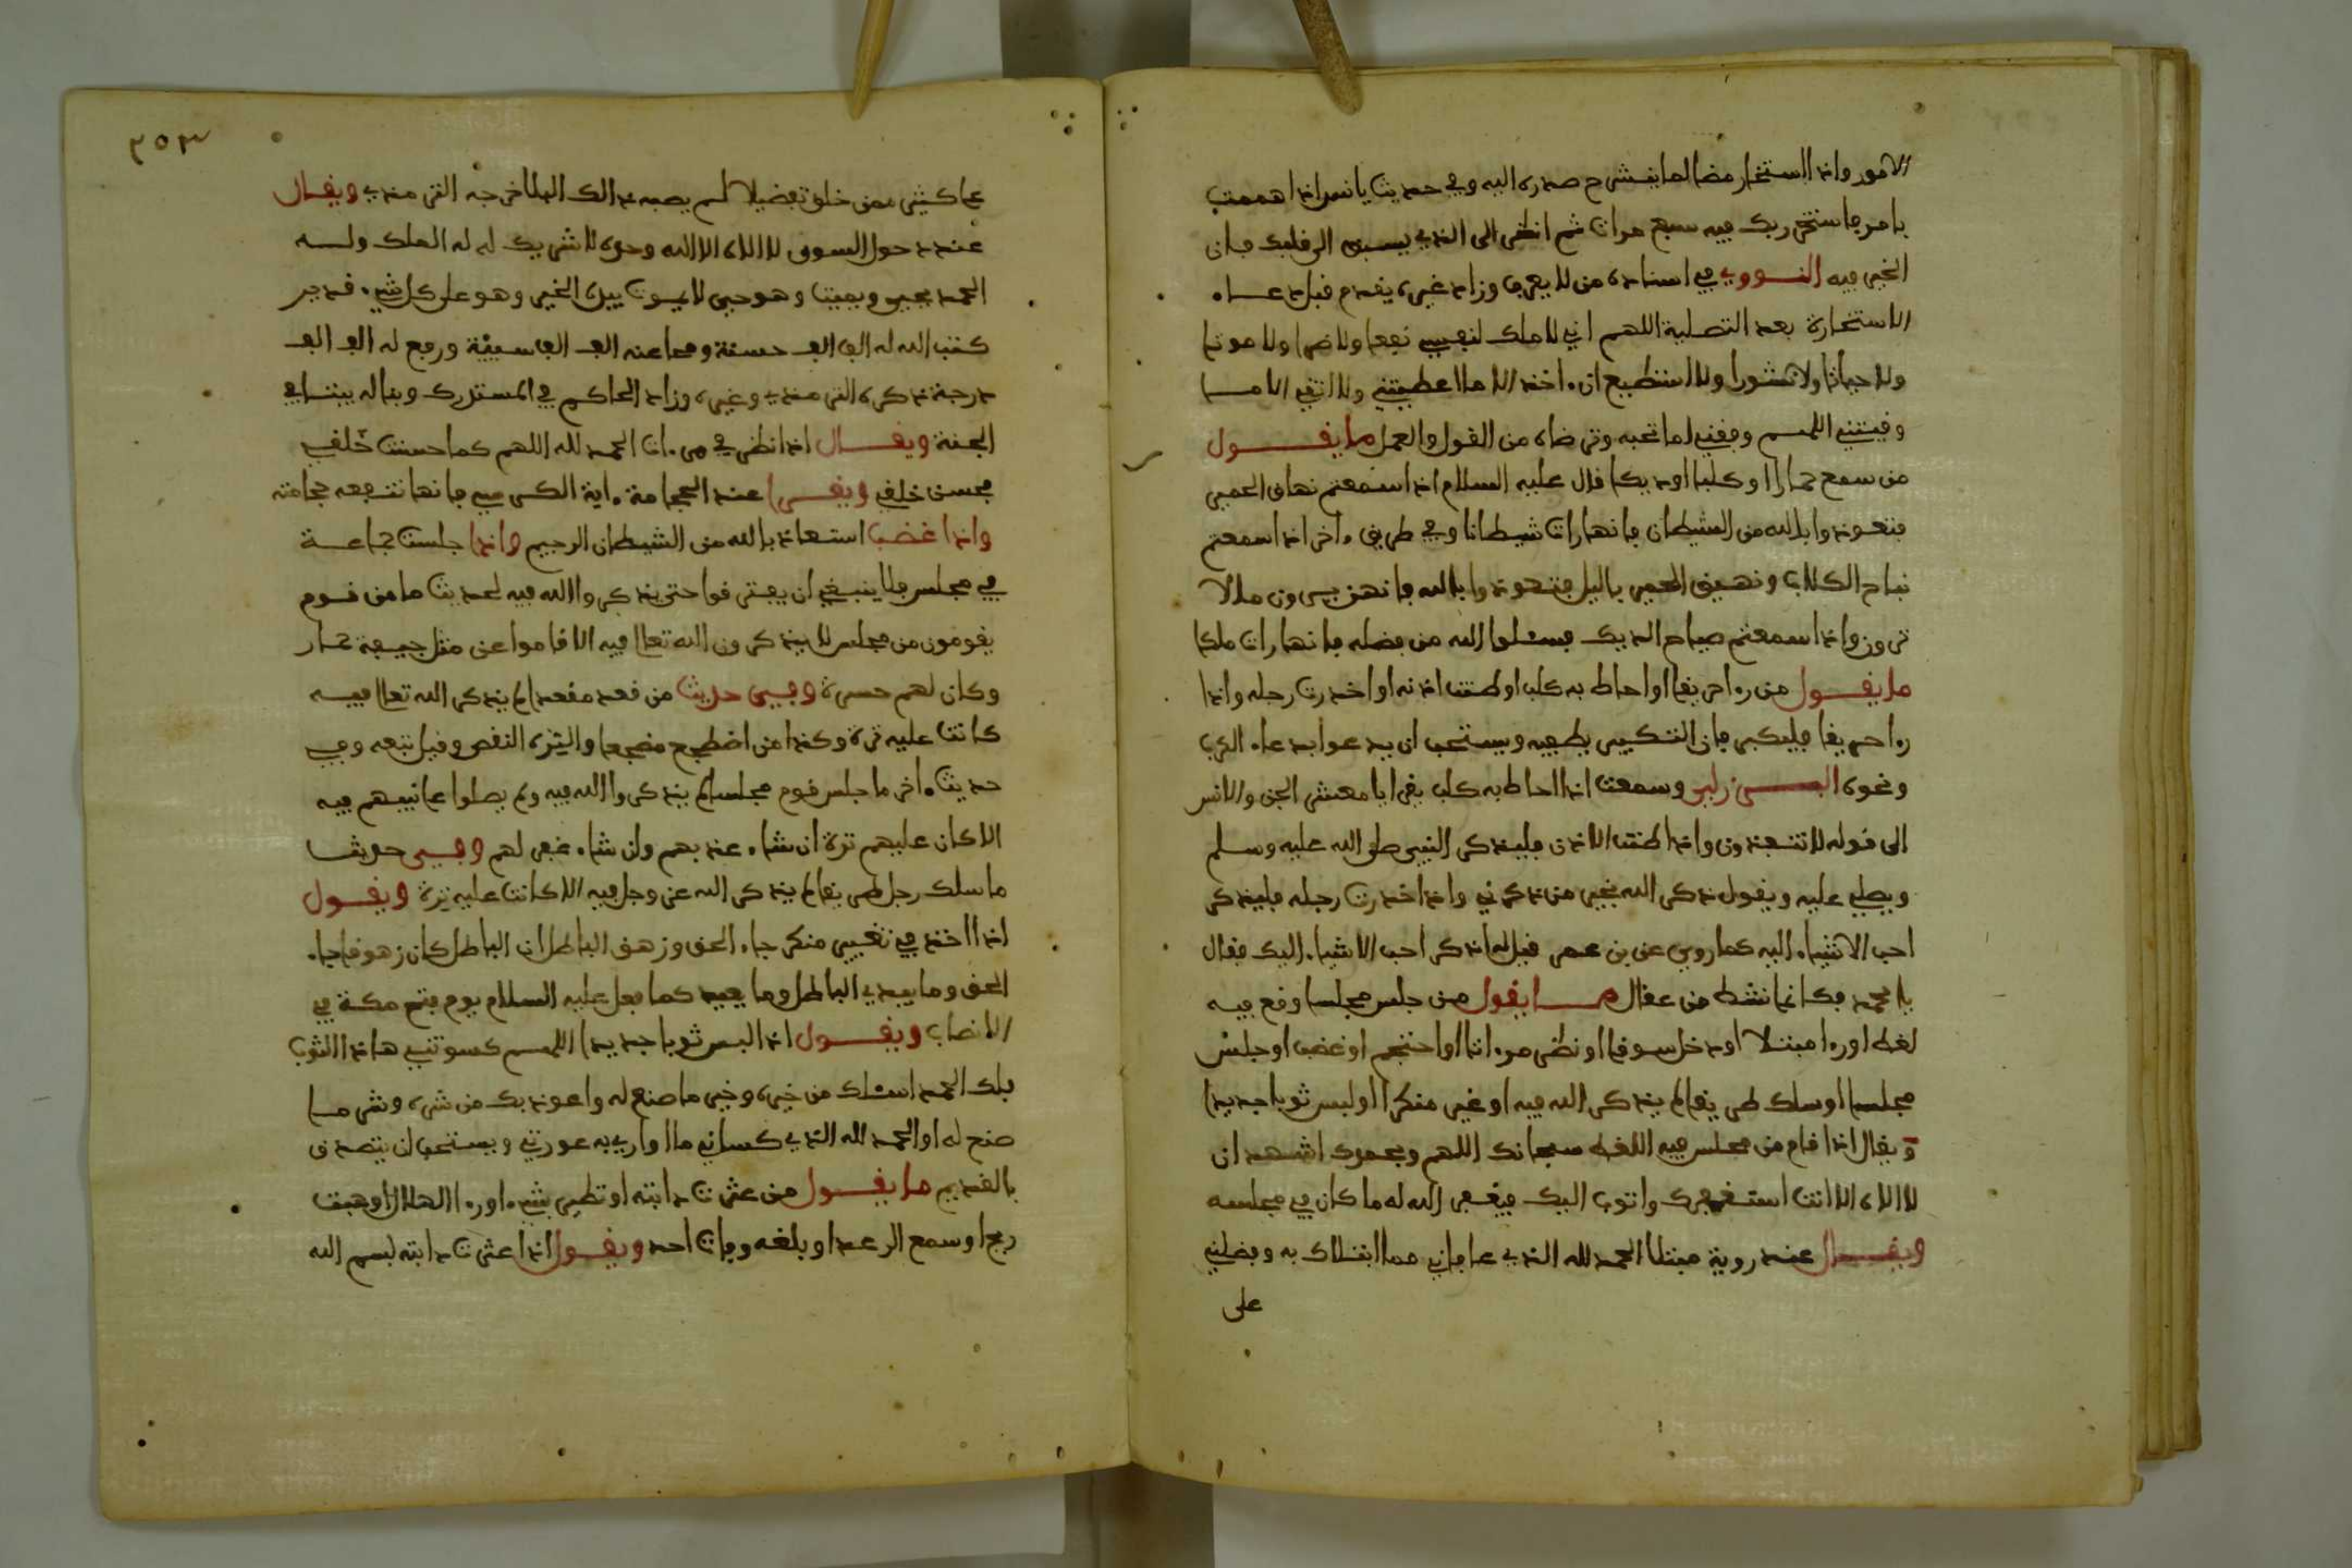 الامور واذا استخار مضا لما ينشرح صدره اليه وفي حديث يا انس اذا هممت
بامر فاستخر ربك فيه سبع مرات ثم انظر الى الذي يسبق الى قلبك فان
الخير فيه النووي في اسناده من لا يعرف وزاد غيره يقدم قبل دعاء
الاستخارة بعد التصلية اللهم اني لا املك لنفسي نفعا ولا ضرا ولا موتا
ولا حياتا ولا نشورا ولا استطيع ان ءاخذ الا ما اعطيتني ولا اتقي الا ما
وقيتني اللهم وفقني لما تحبه وترضاه من القول والعمل ما يقول
من سمع حمارا او كلبا او ديكا قال عليه السلام اذا سمعتم نهاق الحمير
فتعوذوا بالله من الشيطان فانها رات شيطانا وفي طريق ءاخر اذا سمعتم
نباح الكلاب ونهيق الحمير باليل فتعوذوا بالله فانهن يرون ما لا
ترون واذا سمعتم صياح الديك فسئلوا الله من فضله فانها رات ملكا
ما يقول من رءا حريقا او احاط به كلب او طنت اذنه او اخدرت رجله واذا
رءا حريقا فليكبر فان التكبير يطفيه ويستحب ان يدعوا بدعاء الكرب
ونحوه البرزلي وسمعت اذا احاط به كلب يقرا يا معشر الجن والانس
الى قوله لا تنفذون واذا طنت الاذن فليذكر النبي صلى الله عليه وسلم
ويصلي عليه ويقول ذكر الله بخير من ذكرني واذا خدرت رجله فليذكر
احب الاشياء اليه كما روي عن بن عمر قيل له اذكر احب الاشياء اليك فقال
يا محمد فكانما نشط من عقال ما يقول من جلس مجلسا وقع فيه
لغط او رءا مبتلا او دخل سوقا او نظر مرءاتا او احتجم او غضب او جلس
مجلسا او سلك طريقا لم يذكر الله فيه او غير منكرا او لبس ثوبا جديدا
ويقال اذا قام من مجلس فيه اللغط سبحانك اللهم وبحمدك اشهد ان
لا الاه الا انت استغفرك واتوب اليك فيغفر الله له ما كان في مجلسه
ويقال عند روية مبتلا الحمد لله الذي عافاني مما ابتلاك به وفضلني
على
٣٥٣
على كثير ممن خلق تفضيلا لم يصبه ذالك البلا خرجه الترمذي ويقال
عند دخول السوق لا الاه الا الله وحده لا شريك له له الملك وله
الحمد يحيي ويميت وهو حي لا يموت بيده الخير وهو على كل شيء قدير
كتب الله له الف الف حسنة ومحا عنه الف الف سيئة ورفع له الف الف
درجة ذكره الترمذي وغيره وزاد الحاكم في المستدرك وبنا له بيتا في
الجنة ويقال اذا نظر في مرءات الحمد لله اللهم كما حسنت خلقي
فحسن خلقي ويقرا عند الحجامة ءاية الكرسي فانها تنفعه حجامته
واذا غضب استعاذ بالله من الشيطان الرجيم واذا جلست جماعة
في مجلس فلا ينبغي ان يفترقوا حتى يذكروا الله فيه لحديث ما من قوم
يقومون من مجلس لا يذكرون الله تعالى فيه الا قاموا عن مثل جيفة حمار
وكان لهم حسرة وفي حديث من قعد مقعدا لم يذكر الله تعالى فيه
كانت عليه ترة وكذا من اضطجع مضجعا والترة النقص وقيل تبعه وفي
حديث ءاخر ما جلس قوم مجلسا لم يذكروا الله فيه ولم يصلوا على نبيهم فيه
الا كان عليهم ترة ان شاء عذبهم وان شاء غفر لهم وفي حديث
ما سلك رجل طريقا لم يذكر الله عز وجل فيه الا كانت عليه ترة ويقول
اذا اخذ في تغيير منكر جاء الحق وزهق الباطل ان الباطل كان زهوقا جاء
الحق وما يبدي الباطل وما يعيد كما فعل عليه السلام يوم فتح مكة في
الانصاب ويقول اذا لبس ثوبا جديدا اللهم كسوتني هاذا الثوب
فلك الحمد اسئلك من خيره وخير ما صنع له واعوذ بك من شره وشر ما
صنع له او الحمد لله الذي كساني ما اواري به عورتي ويستحب ان يتصدق
بالقديم ما يقول من عثرت دابته او تطير بشيء او رءا الهلال او هبت
ريح او سمع الرعد او بلغه وفات احد ويقول اذا عثرت دابته لبسم الله